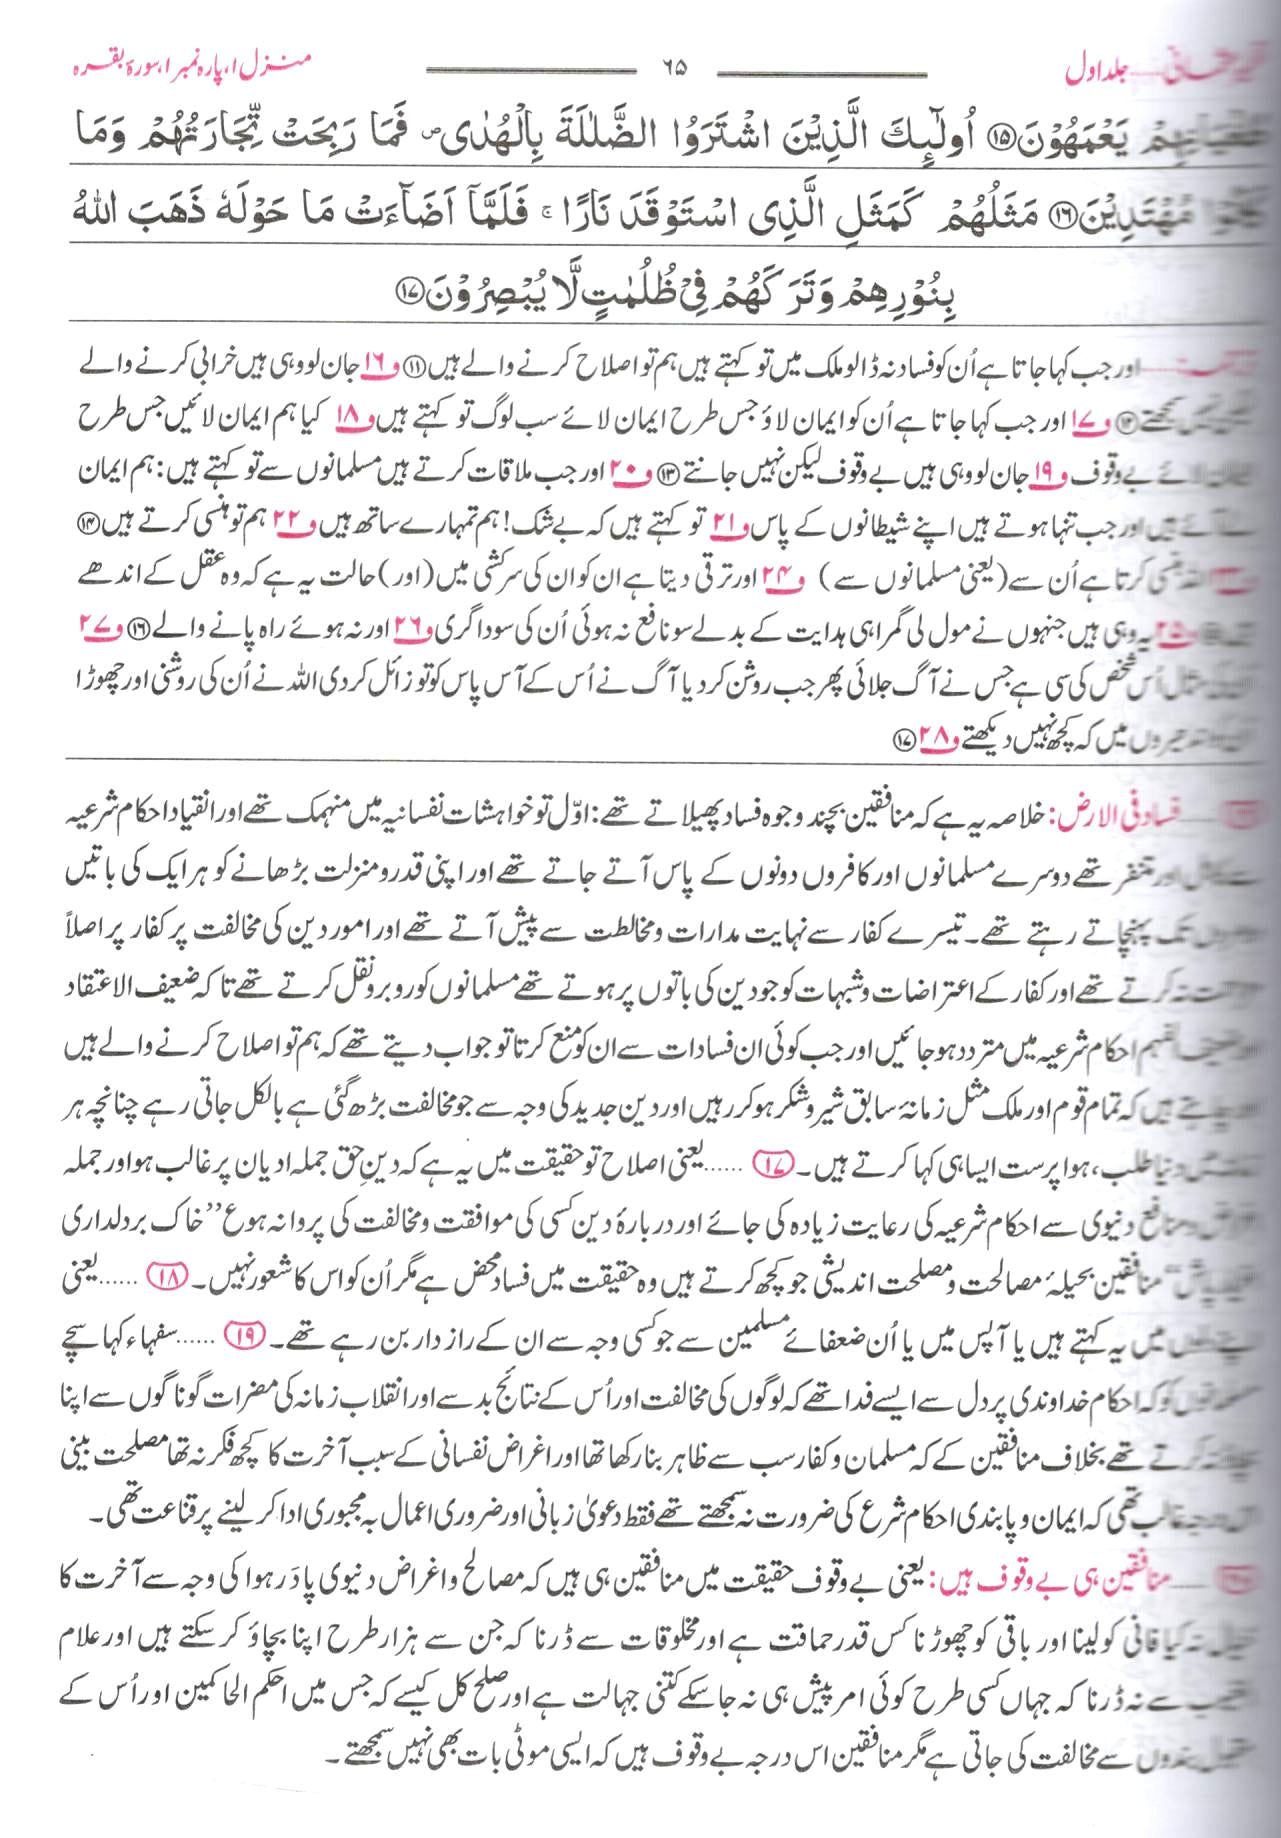 جلد اول ۶۵ منزل ۱، پارہ نمبر ۱، سورۂ بقرہ
يَعْمَهُوْنَ ۝۱۵ اُولٰٓئِكَ الَّذِيْنَ اشْتَرَوُا الضَّلٰلَةَ بِالْهُدٰى ۖ فَمَا رَبِحَتْ تِّجَارَتُهُمْ وَمَا
كَانُوْا مُهْتَدِيْنَ ۝۱۶ مَثَلُهُمْ كَمَثَلِ الَّذِى اسْتَوْقَدَ نَارًا ۚ فَلَمَّآ اَضَآءَتْ مَا حَوْلَهٗ ذَهَبَ اللّٰهُ
بِنُوْرِهِمْ وَتَرَكَهُمْ فِىْ ظُلُمٰتٍ لَّا يُبْصِرُوْنَ ۝۱۷
اور جب کہا جاتا ہے اُن کو فساد نہ ڈالو ملک میں تو کہتے ہیں ہم تو اصلاح کرنے والے ہیں ⑪ و۱۶ جان لو وہی ہیں خرابی کرنے والے
نہیں سمجھتے ⑫ و۱۷ اور جب کہا جاتا ہے اُن کو ایمان لاؤ جس طرح ایمان لائے سب لوگ تو کہتے ہیں و۱۸ کیا ہم ایمان لائیں جس طرح
ایمان لائے بے وقوف و۱۹ جان لو وہی ہیں بے وقوف لیکن نہیں جانتے ⑬ و۲۰ اور جب ملاقات کرتے ہیں مسلمانوں سے تو کہتے ہیں: ہم ایمان
لے آئے ہیں اور جب تنہا ہوتے ہیں اپنے شیطانوں کے پاس و۲۱ تو کہتے ہیں کہ بے شک! ہم تمہارے ساتھ ہیں و۲۲ ہم تو ہنسی کرتے ہیں ⑭
و۲۳ اللہ ہنسی کرتا ہے اُن سے (یعنی مسلمانوں سے) و۲۴ اور ترقی دیتا ہے ان کو ان کی سرکشی میں (اور) حالت یہ ہے کہ وہ عقل کے اندھے
و۲۵ یہ وہی ہیں جنہوں نے مول لی گمراہی ہدایت کے بدلے سو نافع نہ ہوئی اُن کی سوداگری و۲۶ اور نہ ہوئے راہ پانے والے ⑯ و۲۷
مثال اُس شخص کی سی ہے جس نے آگ جلائی پھر جب روشن کر دیا آگ نے اُس کے آس پاس کو تو زائل کر دی اللہ نے اُن کی روشنی اور چھوڑا
اندھیروں میں کہ کچھ نہیں دیکھتے و۲۸ ⑰
۱۶ ..... فساد فی الارض: خلاصہ یہ ہے کہ منافقین بچند وجوہ فساد پھیلاتے تھے: اوّل تو خواہشات نفسانیہ میں منہمک تھے اور انقیاد احکام شرعیہ
سے کاہل اور متنفر تھے دوسرے مسلمانوں اور کافروں دونوں کے پاس آتے جاتے تھے اور اپنی قدر و منزلت بڑھانے کو ہر ایک کی باتیں
تک پہنچاتے رہتے تھے۔ تیسرے کفار سے نہایت مدارات و مخالطت سے پیش آتے تھے اور امور دین کی مخالفت پر کفار پر اصلاً
نہ کرتے تھے اور کفار کے اعتراضات و شبہات کو جو دین کی باتوں پر ہوتے تھے مسلمانوں کو روبرو نقل کرتے تھے تاکہ ضعیف الاعتقاد
الفہم احکام شرعیہ میں متردد ہو جائیں اور جب کوئی ان فسادات سے ان کو منع کرتا تو جواب دیتے تھے کہ ہم تو اصلاح کرنے والے ہیں
چاہتے ہیں کہ تمام قوم اور ملک مثل زمانۂ سابق شیر و شکر ہو کر رہیں اور دین جدید کی وجہ سے جو مخالفت بڑھ گئی ہے بالکل جاتی رہے چنانچہ ہر
میں دنیا طلب، ہوا پرست ایسا ہی کہا کرتے ہیں۔ ۱۷ ...... یعنی اصلاح تو حقیقت میں یہ ہے کہ دینِ حق جملہ ادیان پر غالب ہو اور جملہ
منافع دنیوی سے احکام شرعیہ کی رعایت زیادہ کی جائے اور دربارۂ دین کسی کی موافقت و مخالفت کی پروا نہ ہو ع ”خاک بر دلداری
پاش“ منافقین بحیلۂ مصالحت و مصلحت اندیشی جو کچھ کرتے ہیں وہ حقیقت میں فساد محض ہے مگر اُن کو اس کا شعور نہیں۔ ۱۸ ...... یعنی
اپنے دلوں میں یہ کہتے ہیں یا آپس میں یا اُن ضعفائے مسلمین سے جو کسی وجہ سے ان کے رازدار بن رہے تھے۔ ۱۹ ...... سفہاء کہا سچے
کو کہ احکام خداوندی پر دل سے ایسے فدا تھے کہ لوگوں کی مخالفت اور اُس کے نتائج بد سے اور انقلاب زمانہ کی مضرات گوناگوں سے اپنا
نہ کرتے تھے بخلاف منافقین کے کہ مسلمان و کفار سب سے ظاہر بنا رکھا تھا اور اغراض نفسانی کے سبب آخرت کا کچھ فکر نہ تھا مصلحت بینی
غالب تھی کہ ایمان و پابندی احکام شرع کی ضرورت نہ سمجھتے تھے فقط دعویٰ زبانی اور ضروری اعمال بہ مجبوری ادا کر لینے پر قناعت تھی۔
..... منافقین ہی بے وقوف ہیں: یعنی بے وقوف حقیقت میں منافقین ہی ہیں کہ مصالح و اغراض دنیوی پادَر ہوا کی وجہ سے آخرت کا
نہ کیا فانی کو لینا اور باقی کو چھوڑنا کس قدر حماقت ہے اور مخلوقات سے ڈرنا کہ جن سے ہزار طرح اپنا بچاؤ کر سکتے ہیں اور علام
سے نہ ڈرنا کہ جہاں کسی طرح کوئی امر پیش ہی نہ جا سکے کتنی جہالت ہے اور صلح کل کیسے کہ جس میں احکم الحاکمین اور اُس کے
بندوں سے مخالفت کی جاتی ہے مگر منافقین اس درجہ بے وقوف ہیں کہ ایسی موٹی بات بھی نہیں سمجھتے۔